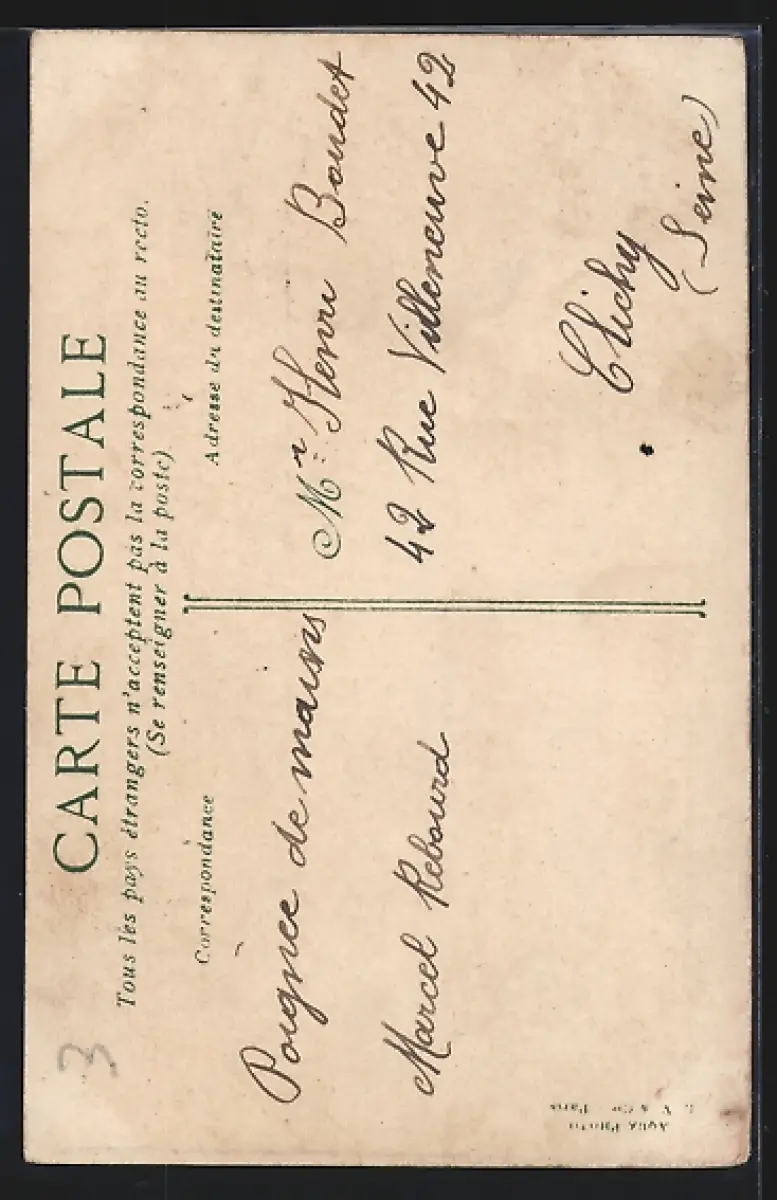 CARTE POSTALE
Tous les pays étrangers n'acceptent pas la correspondance au recto.
(Se renseigner à la poste)
Correspondance
Poignée de mains
Marcel Rebourd
Adresse du destinataire
Mr Henri Boudet
42 Rue Villeneuve 42
Clichy
(Seine)
3
Aqua Photo
L. V. & Cie Paris